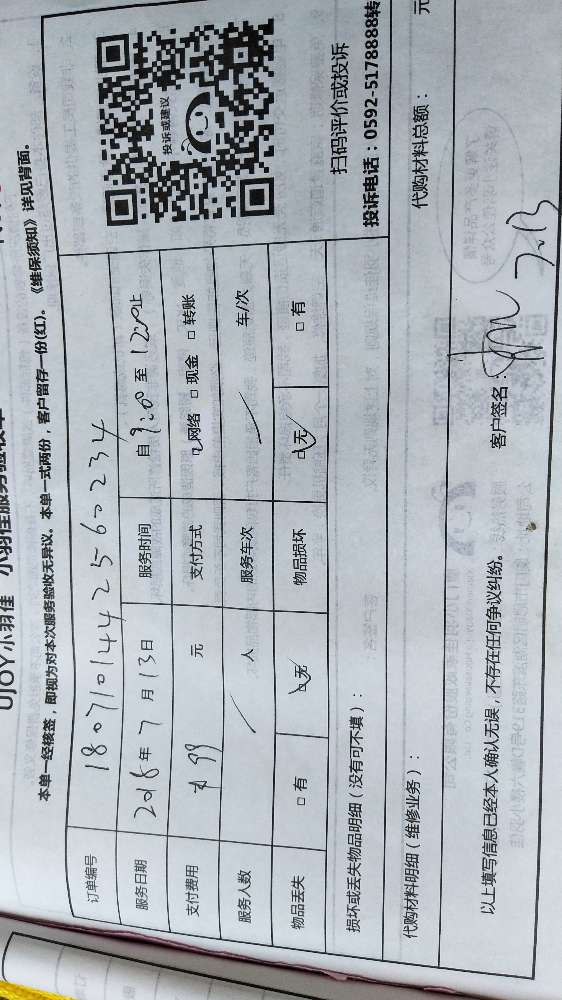 UJOY小羽佳 小羽佳服务验收单
本单一经核签，即视为对本次服务验收无异议。本单一式两份，客户留存一份(红)。《维保须知》详见背面。
订单编号 180710144256 0234
服务日期 2018年7月13日 服务时间 自9:00至12:00止
支付费用 99 元 支付方式 ☑网络 □现金 □转账
服务人数 / 人 服务车次 / 车/次
物品丢失 □有 ☑无 物品损坏 ☑无 □有
投诉或建议
扫码评价或投诉
投诉电话：0592-5178888转
损坏或丢失物品明细（没有可不填）：
代购材料明细（维修业务）： 代购材料总额： 元
以上填写信息已经本人确认无误，不存在任何争议纠纷。 客户签名： 7.13